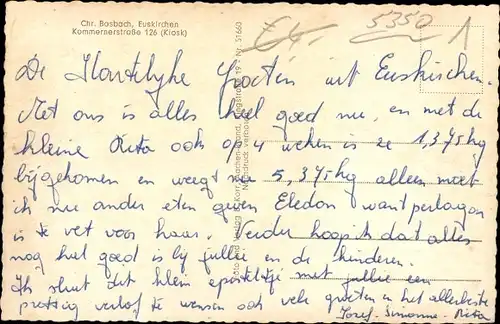 Chr. Bosbach, Euskirchen
Kommernerstraße 126 (Kiosk)
5350
1
De Hartelyke Groeten uit Euskirchen.
Met ons is alles heel goed nu, en met de
kleine Rita ook op 4 weken is ze 1,375 kg
bijgekomen en weegt nu 5,375 kg alleen moet
ik nu ander eten geven Eledon want perlargon
is te vet voor haar. Verder hoop ik dat alles
nog heel goed is bij jullie en de kinderen.
Ik sluit dit klein episteltje met jullie een
prettig verlof te wensen ook vele groeten en het allerbeste
Josef-Simonne-Rita
Nr. 51660